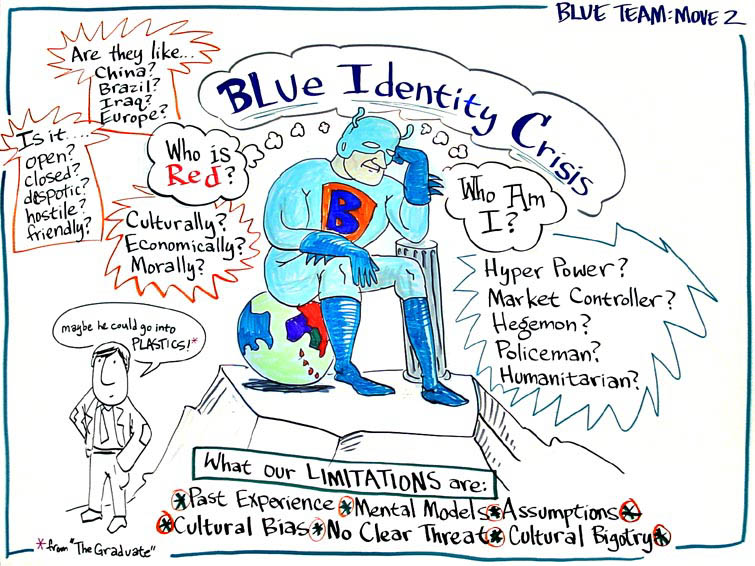 BLUE TEAM: MOVE 2
BLUE IDENTITY CRISIS
Are they like...
China?
Brazil?
Iraq?
Europe?
Is it....
open?
closed?
despotic?
hostile?
friendly?
Who is
Red?
Culturally?
Economically?
Morally?
B
Who Am
I?
Hyper Power?
Market Controller?
Hegemon?
Policeman?
Humanitarian?
maybe he could go into
PLASTICS!*
What our LIMITATIONS are:
*Past Experience *Mental Models*Assumptions*
*Cultural Bias*No Clear Threat*Cultural Bigotry*
*from "The Graduate"